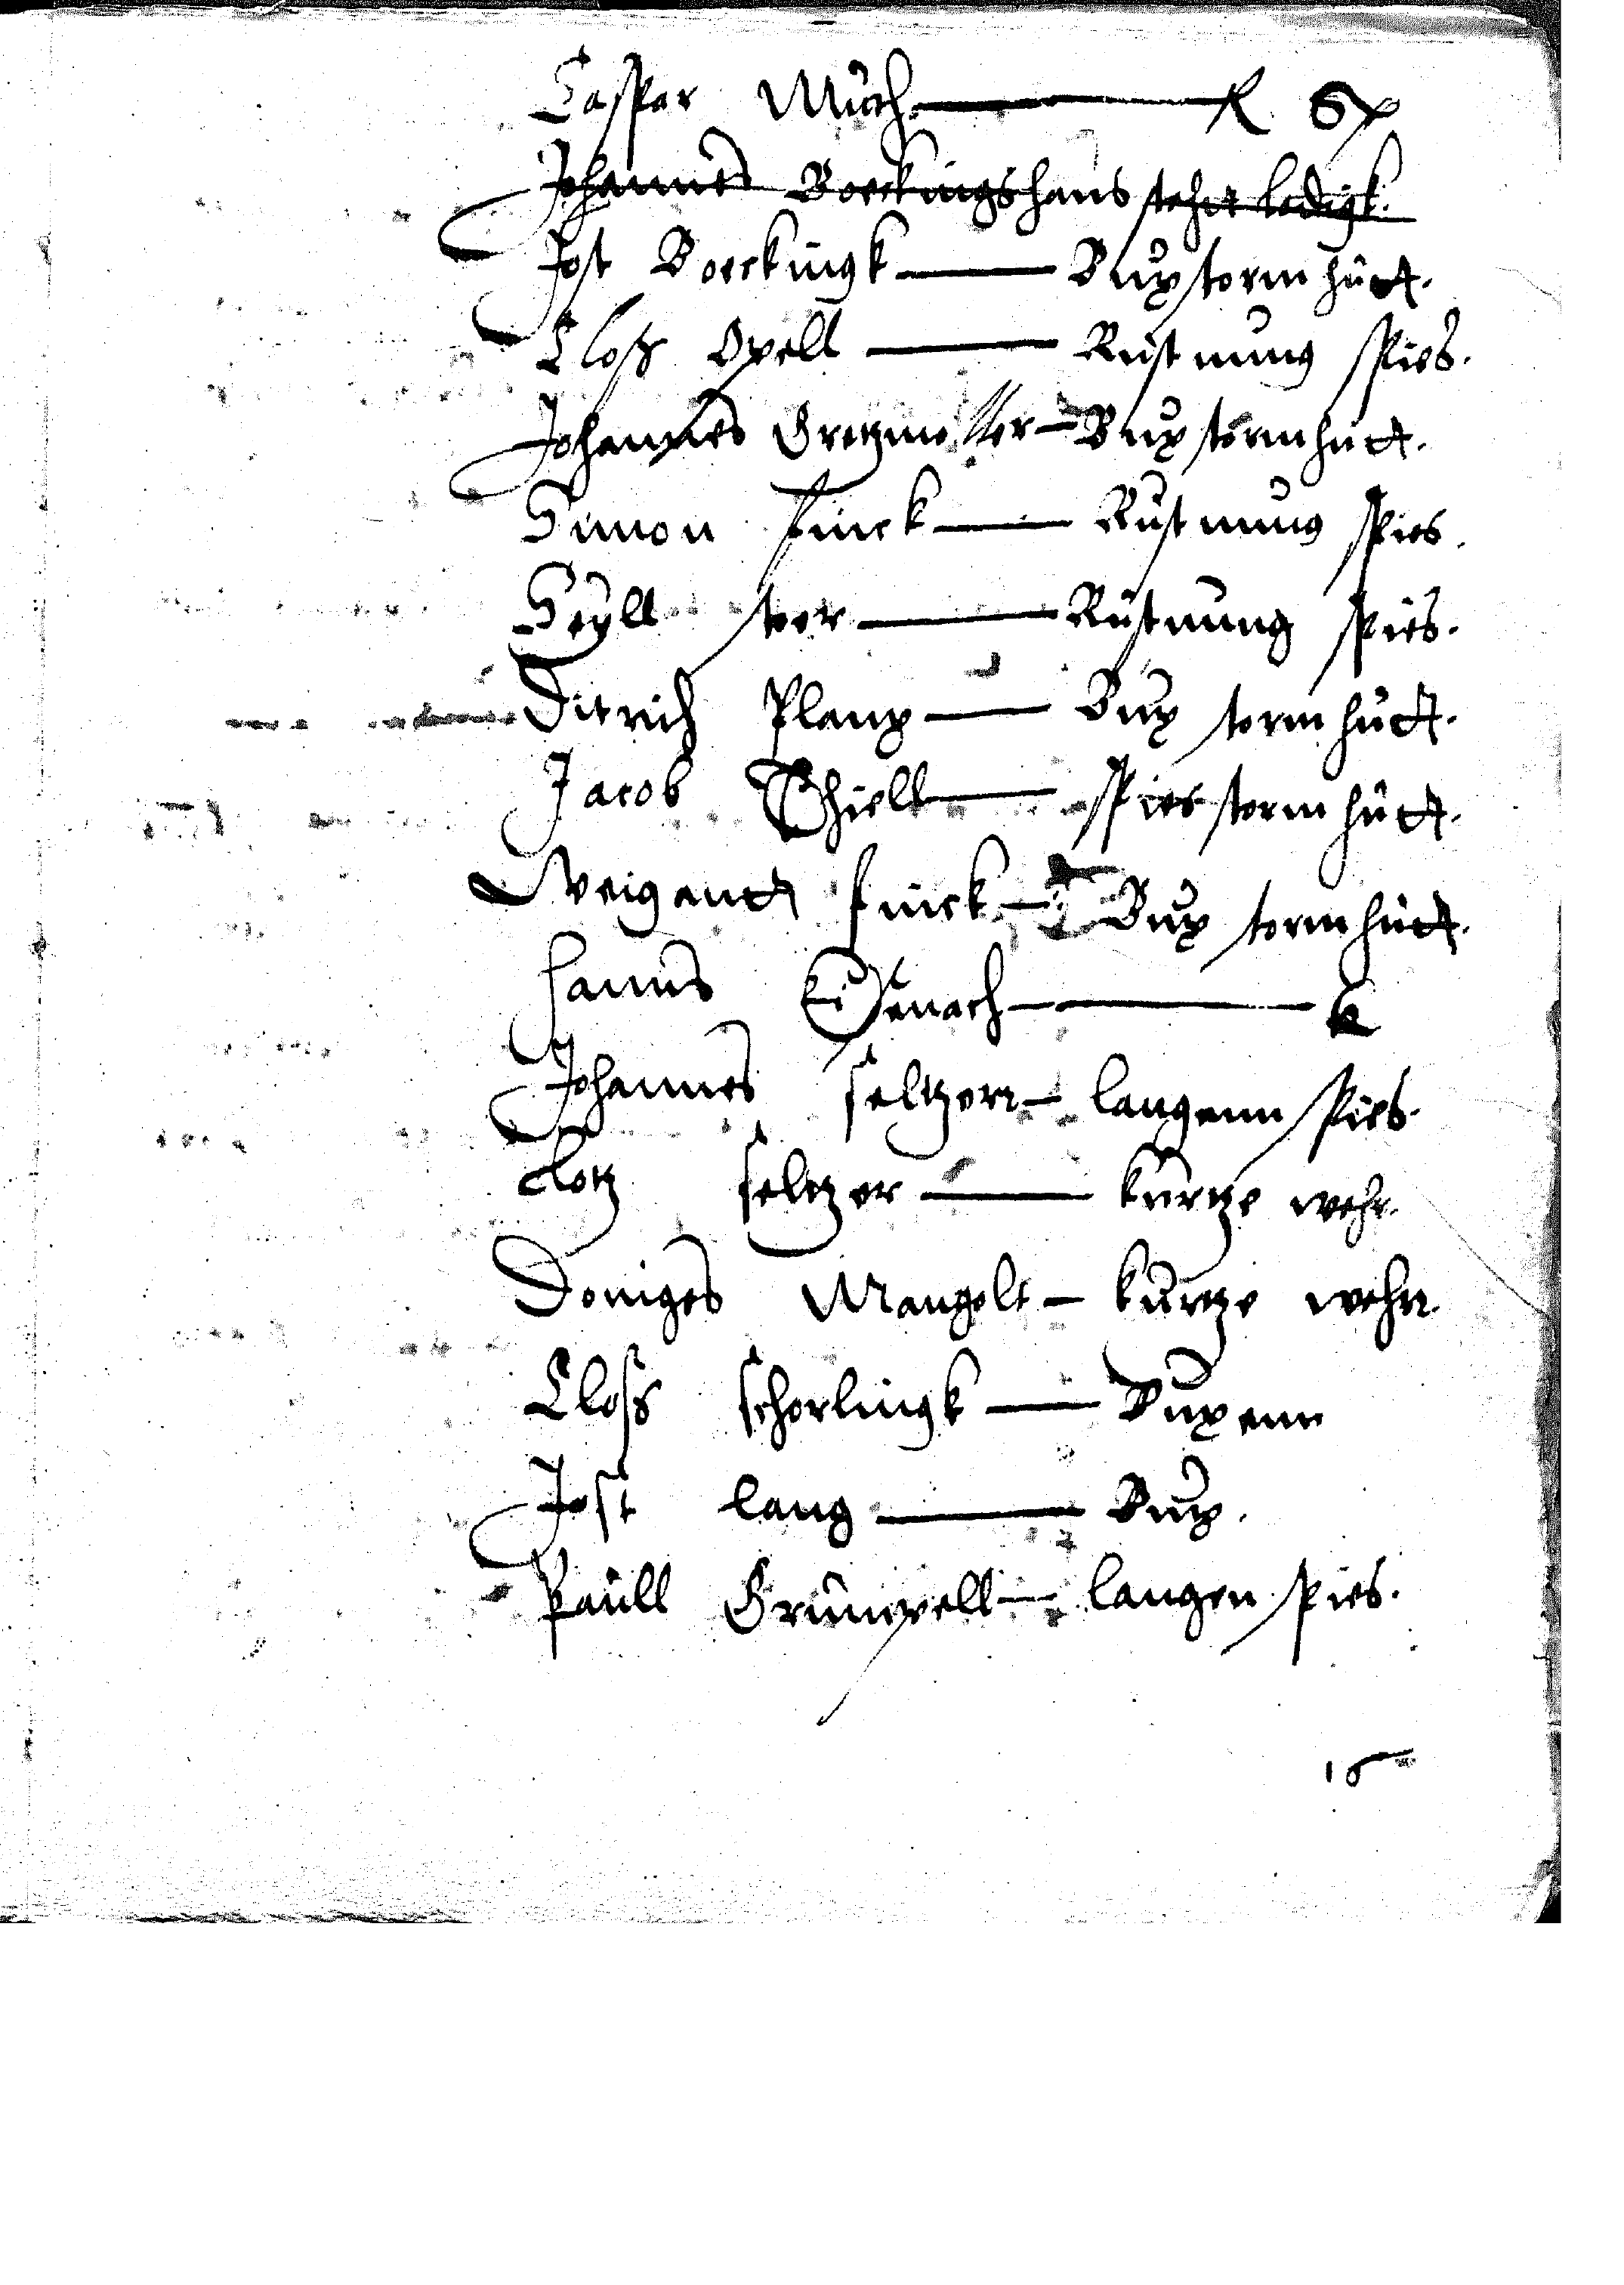 Casspar Much — R Sp
Johannes Boeckingshaus stehet ledigk.
Jost Boeckingk — Bux stormhutt.
Closs Opell — Rustnung Spies.
Johannes Gretzmoller — Bux stormhutt.
Simon Finck — Rustnung Spies.
Seyll — Rustnung Spies.
Ditrich Planz — Bux stormhutt.
Jacob Thiell — Spies stormhutt.
Weigandt Finck — Bux stormhutt.
Hanns Eisenach —
Johannes Seltzerr — langenn Spies.
Clotz Seltzer — kurtze wehr.
Doniges Mangolt — kurtze wehrr.
Closs Scherlingk — Buxenn
Jost Lang — Bux.
Paull Grunewell — langen Spies.
16